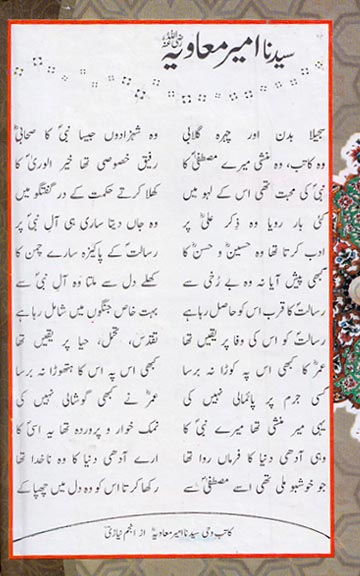 سیدنا امیر معاویہؓ
سجیلا بدن اور چہرہ گلابی وہ شہزادوں جیسا نبیؐ کا صحابیؓ
وہ کاتب، وہ منشی میرے مصطفیٰؐ کا رفیق خصوصی تھا خیر الوریٰؐ کا
نبیؐ کی محبت تھی اس کے لہو میں کھلا کرتے حکمت کے در گفتگو میں
کئی بار رویا وہ ذکر علیؓ پر وہ جاں دیتا ساری ہی آلِ نبیؐ پر
ادب کرتا تھا وہ حسینؓ و حسنؓ کا رسالتؐ کے پاکیزہ سارے چمن کا
کبھی پیش آیا نہ وہ بے رُخی سے کھلے دل سے ملتا وہ آلِ نبیؐ سے
رسالتؐ کا قرب اس کو حاصل رہا ہے بہت خاص جنگوں میں شامل رہا ہے
رسالتؐ کو اس کی وفا پر یقیں تھا تقدس، تحمل، حیا پر یقیں تھا
عمرؓ کا کبھی اس پہ کوڑا نہ برسا کبھی اس پہ اس کا ہتھوڑا نہ برسا
کسی جرم پر پائمالی نہیں کی عمرؓ نے کبھی گوشمالی نہیں کی
یہی میر منشی تھا میرے نبیؐ کا نمک خوار و پروردہ تھا یہ اسیؐ کا
وہی آدھی دنیا کا فرماں روا تھا ارے آدھی دنیا کا وہ ناخدا تھا
جو خوشبو ملی تھی اسے مصطفیٰؐ سے رکھا کرتا اس کو وہ دل میں چھپا کے
کاتب وحی سیدنا امیر معاویہؓ از انجم نیازی